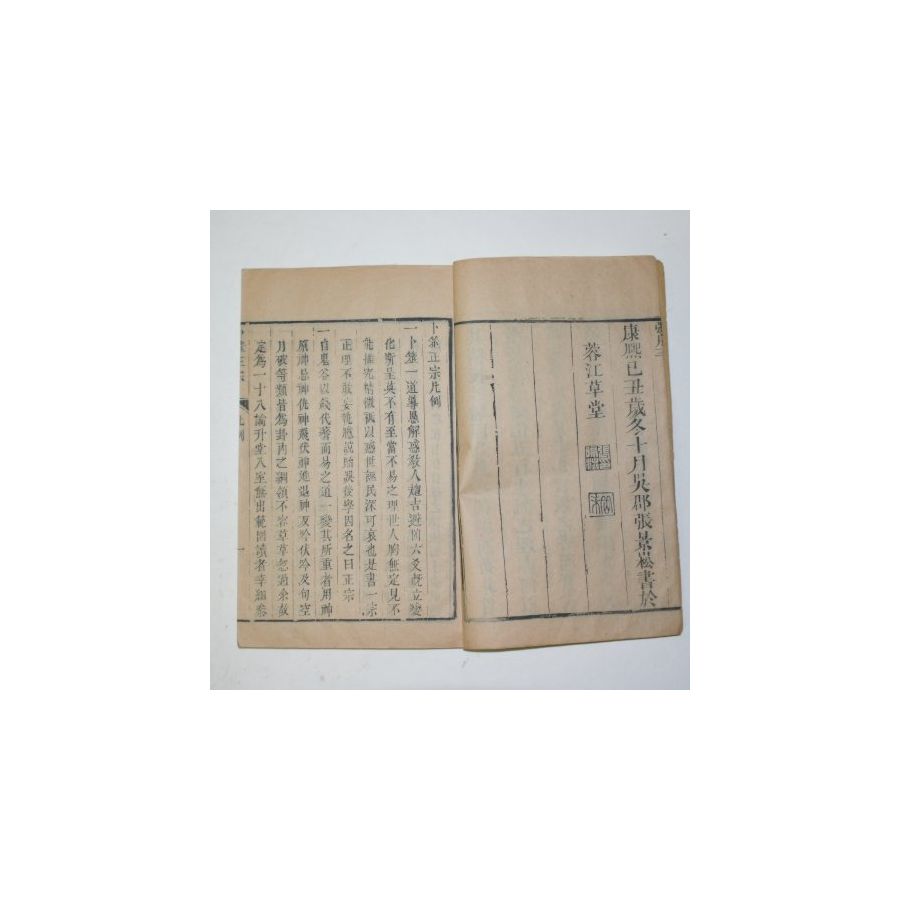 康熙己丑歲冬十月吳郡張景崧書於
蓉江草堂
卜筮正宗凡例
一卜筮一道導愚解惑教人趨吉避凶六爻既立變
化斯呈莫不有至當不易之理世人胸無定見不
能推究精微祇以惑世誣民深可哀也是書一宗
正理不敢妄說貽誤後學因名之曰正宗
一自鬼谷以錢代蓍而易之道一變其所重者用神
原神忌神仇神飛伏神進退神反吟伏吟及旬空
月破等類皆為卦內之綱領不容草草忽過余故
定為一十八論升堂入室無出範圍讀者幸細參